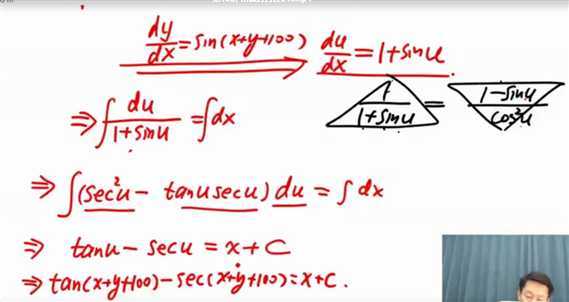 dy/dx = sin(x+y+100) du/dx = 1+sinu
⇒ ∫ du/(1+sinu) = ∫dx 1/(1+sinu) = (1-sinu)/cos²u
⇒ ∫(sec²u - tanusecu) du = ∫dx
⇒ tanu - secu = x+C
⇒ tan(x+y+100) - sec(x+y+100) = x+C.